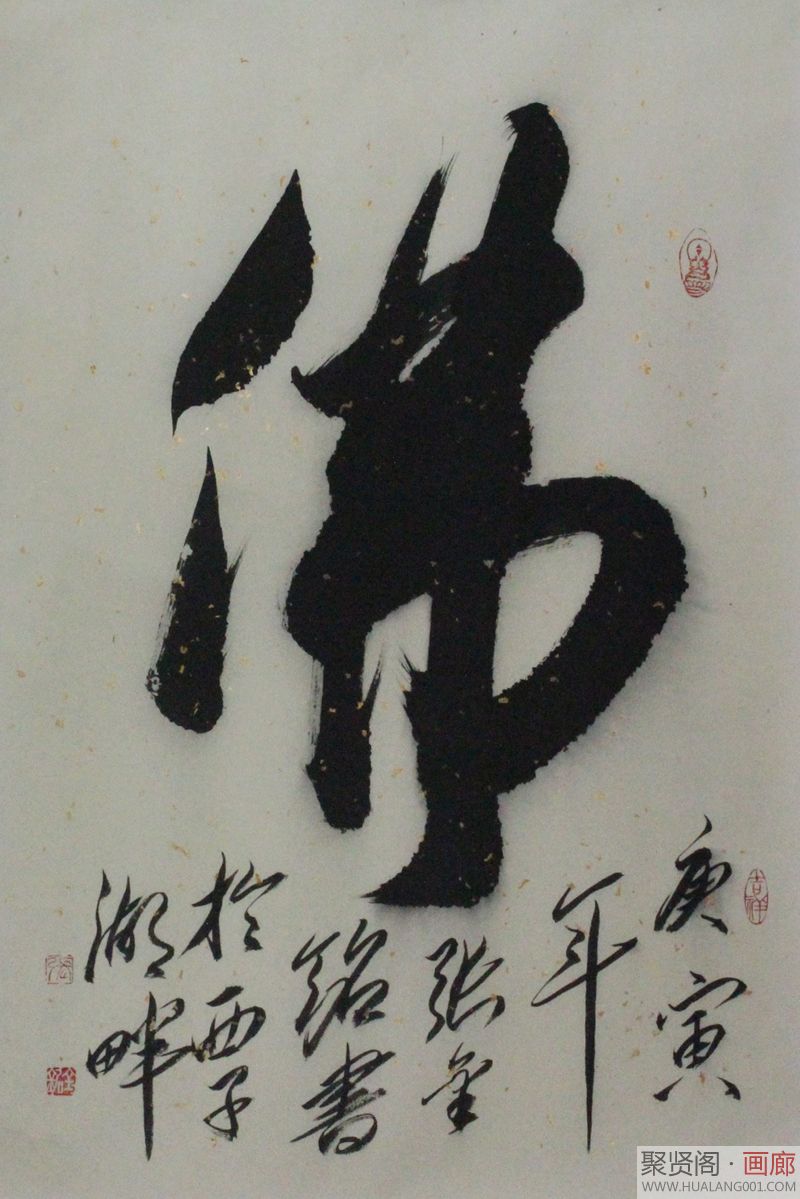 佛
庚寅
年
张金
铭書
於西子
湖畔
吉祥
聚贤阁·画廊
WWW.HUALANG001.COM